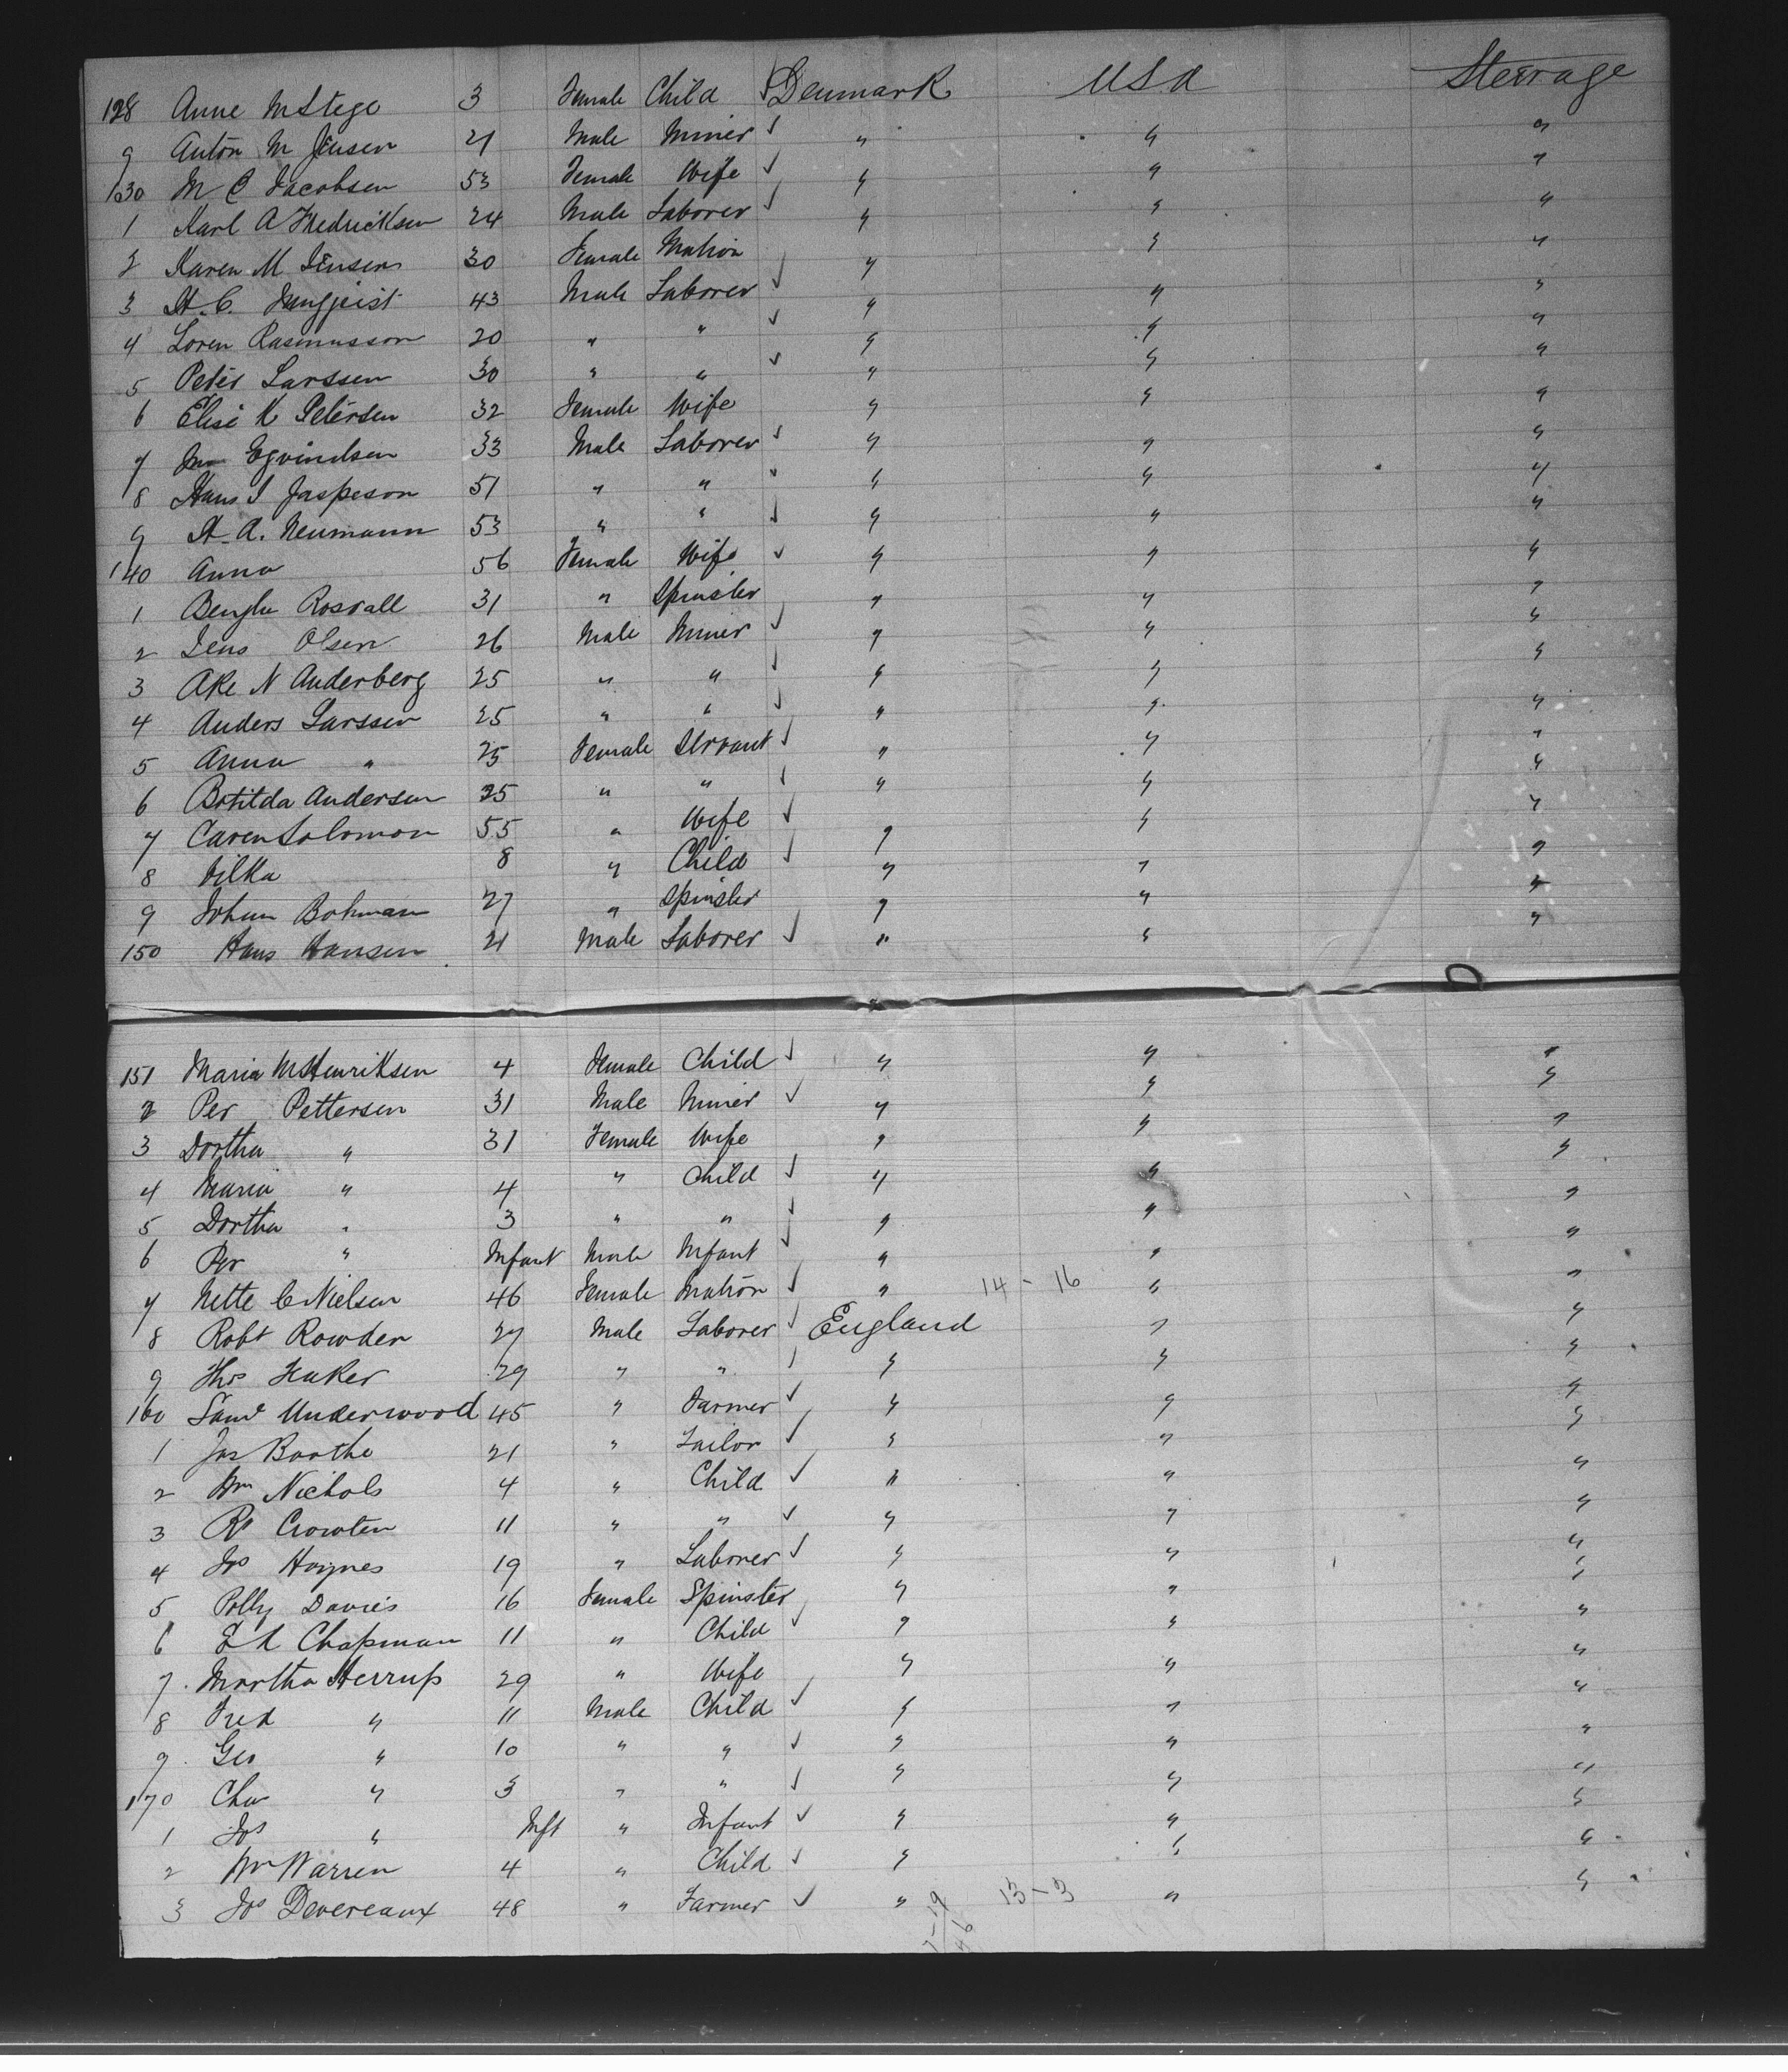 128 Anne M Stege 3 Female Child ✓ Denmark USA Steerage
9 Anton M Jensen 21 Male Miner ✓ " " "
130 M C Jacobsen 53 Female Wife ✓ " " "
1 Karl A Fredricksen 24 Male Laborer ✓ " " "
2 Karen M Jensen 30 Female Matron " " "
3 H. C. 43 Male Laborer ✓ " " "
4 Soren Rasmusson 20 " " ✓ " " "
5 Peter Larssen 30 " " ✓ " " "
6 Elise K Petersen 32 Female Wife " " "
7 Egvindsen 33 Male Laborer ✓ " " "
8 Hans J Jaspeson 51 " " ✓ " " "
9 H. A. Neumann 53 " " ✓ " " "
140 Anna 56 Female Wife ✓ " " "
1 Bengta Rosvall 31 " Spinster " " "
2 Jens Olsen 26 Male Miner ✓ " " "
3 Ake N Anderberg 25 " " ✓ " " "
4 Anders Larssen 25 " " ✓ " " "
5 Anna " 25 Female Servant ✓ " " "
6 Botilda Andersen 25 " " ✓ " " "
7 Caren Solomon 55 " Wife ✓ " " "
8 Vilka 8 " Child ✓ " " "
9 Bohman 27 " Spinster " " "
150 Hans Hansen 21 Male Laborer ✓ " " "
151 Maria M Henriksen 4 Female Child ✓ " " "
2 Per Pettersen 31 Male Miner ✓ " " "
3 Dortha " 31 Female Wife " " "
4 Maria " 4 " Child ✓ " " "
5 Dortha " 3 " " ✓ " " "
6 Per " Infant Male Infant ✓ " " "
7 Mette C Nielsen 46 Female Matron ✓ " 14 - 16 " "
8 Robt Rowden 27 Male Laborer ✓ England " "
9 Thos 29 " " ✓ " " "
160 Saml Underwood 45 " Farmer ✓ " " "
1 Jas Boothe 21 " Tailor ✓ " " "
2 Wm Nichols 4 " Child ✓ " " "
3 Rd Crowten 11 " " ✓ " " "
4 Jos Haynes 19 " Laborer ✓ " " "
5 Polly Davies 16 Female Spinster " " "
6 Chapman 11 " Child ✓ " " "
7 Martha Herrup 29 " Wife " " "
8 Fred " 11 Male Child ✓ " " "
9 Geo " 10 " " ✓ " " "
170 Chas " 3 " " ✓ " " "
1 Jos " Inft " Infant ✓ " " "
2 Wm Warren 4 " Child ✓ " " "
3 Jos Devereaux 48 " Farmer ✓ " 13-3 " "